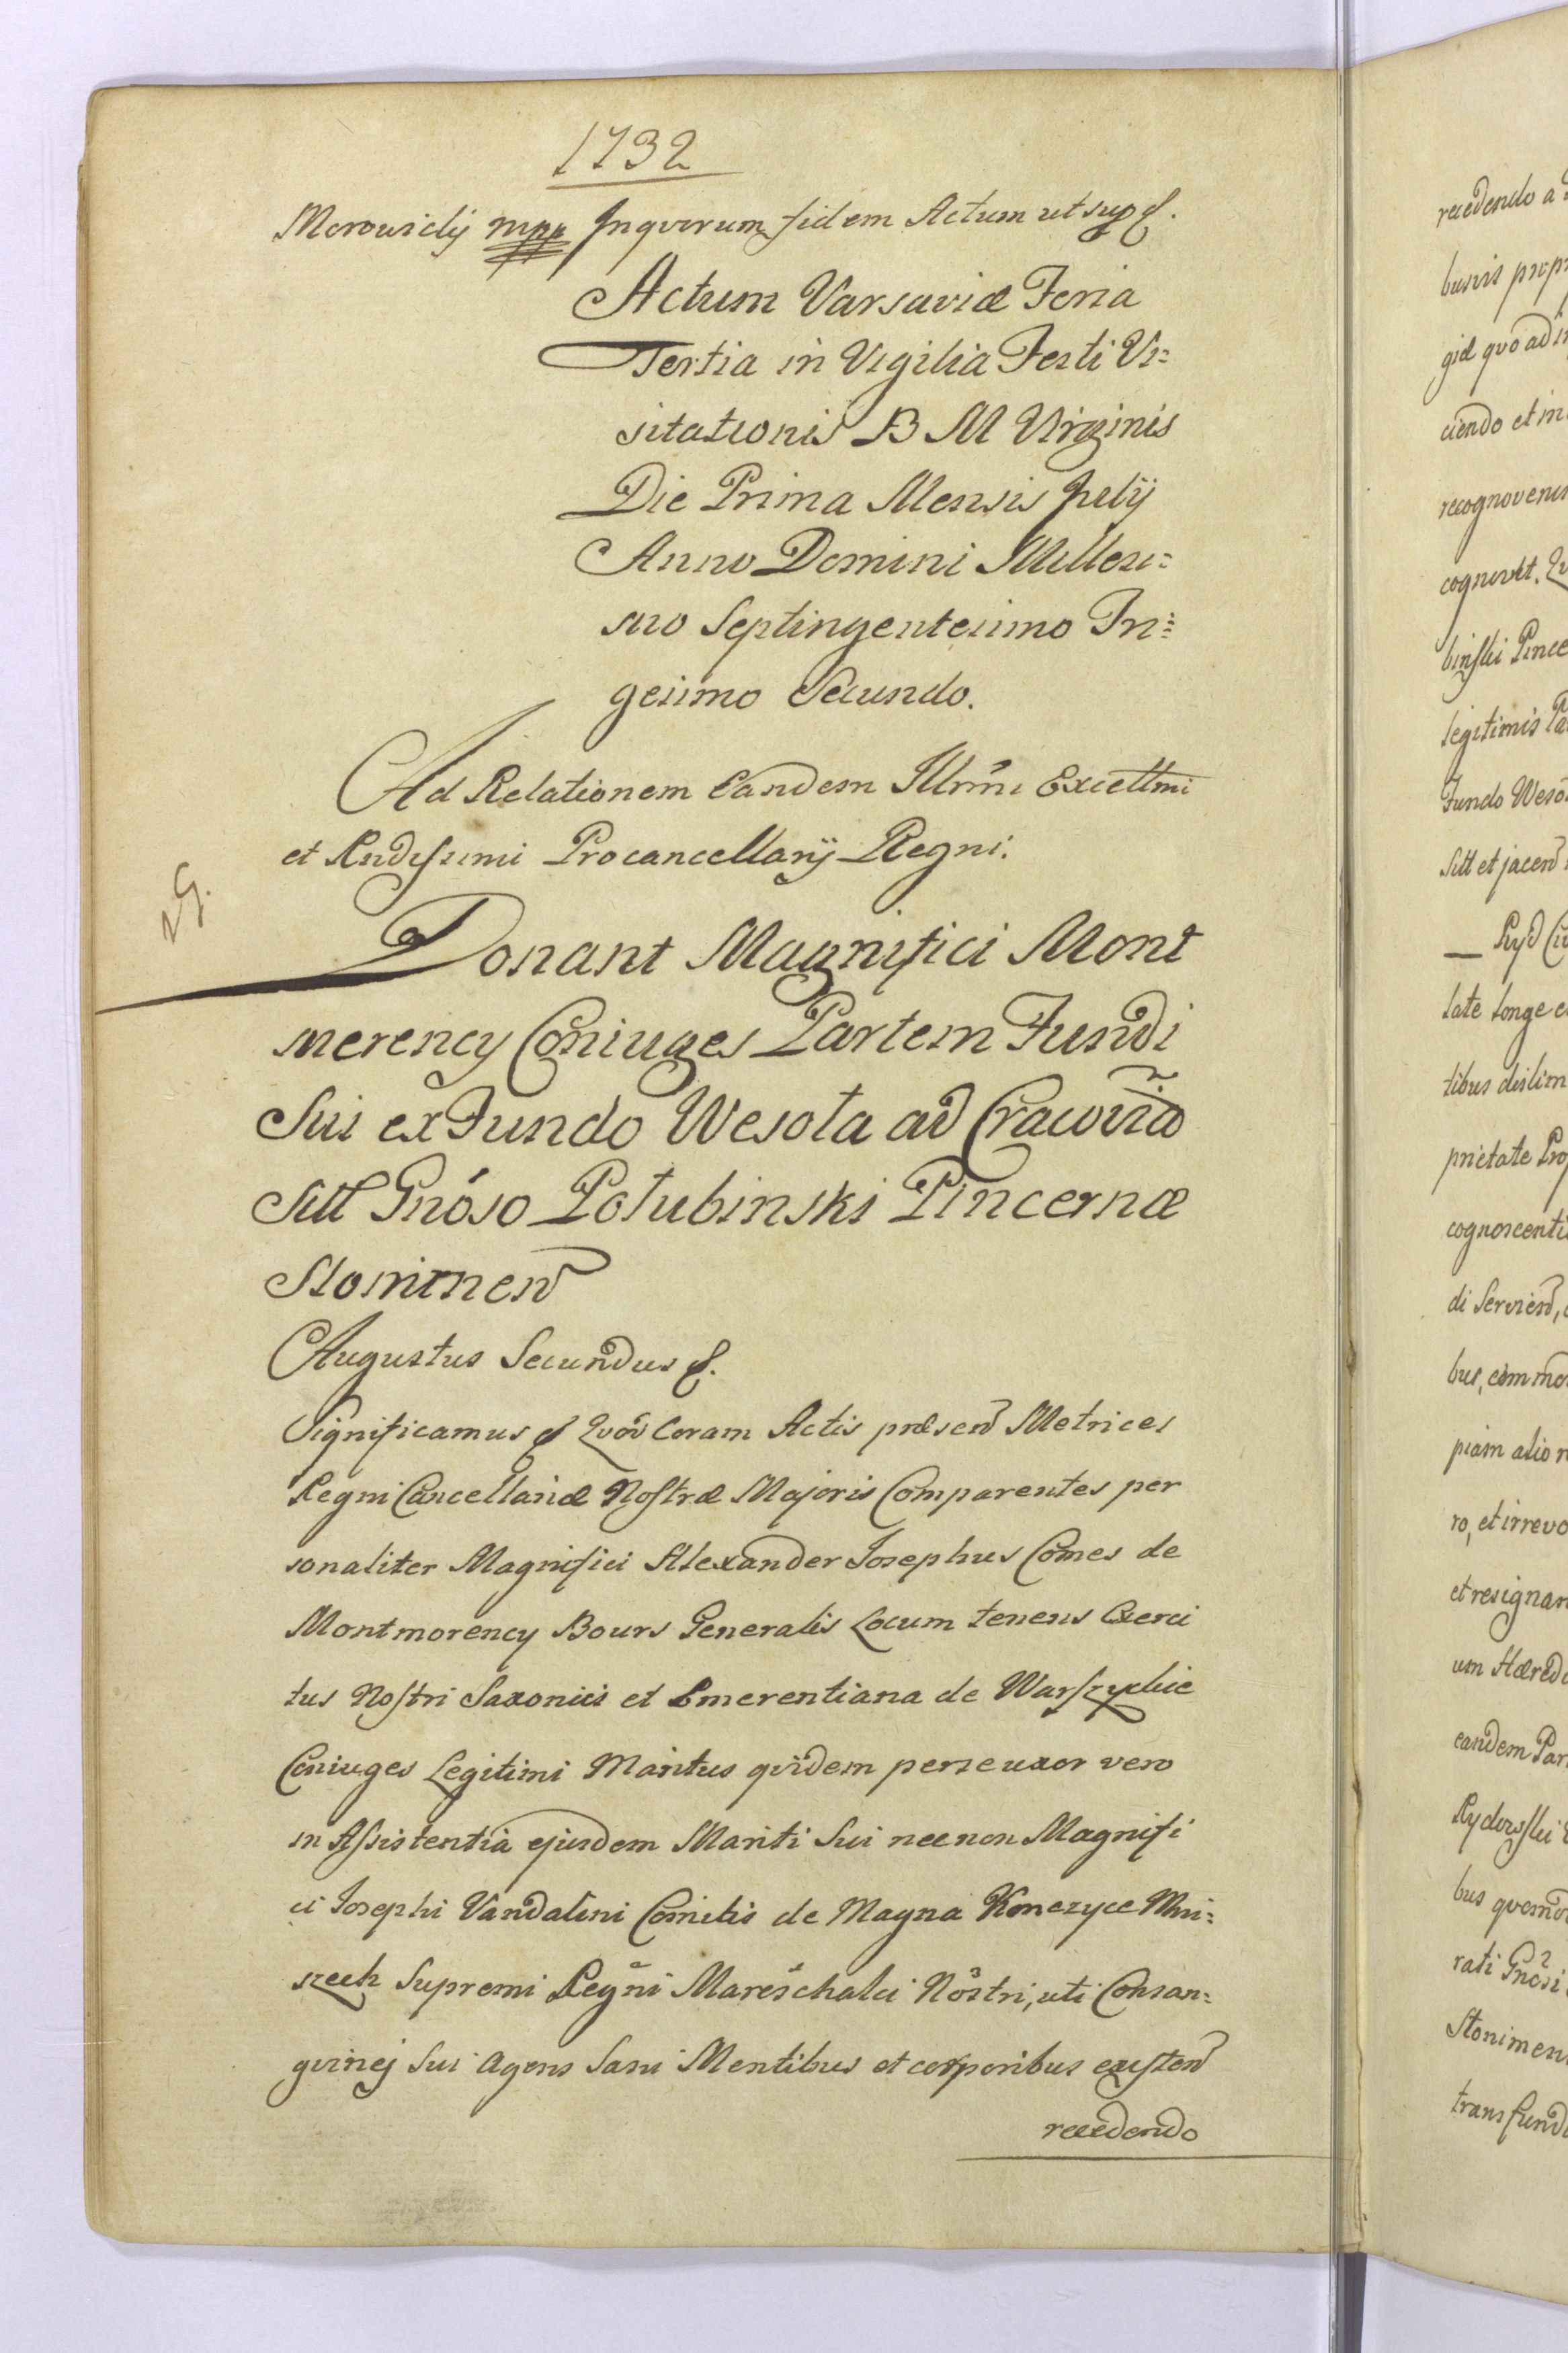 1732
Morowicly mpp Inqvorum fidem Actum ut sup &.
Actum Varsaviæ Feria
Tertia in Vigilia Festi Vi:
sitationis B M Virginis
Die Prima Mensis Julÿ
Anno Domini Millesi:
mo Septingentesimo Tri:
gesimo Secundo.
Ad Relationem Eandem Illrmi Excellmi
et Rndissimi Procancellarÿ Regni.
29.
Donant Magnifici Mont
merency Coniuges Partem Fundi
Sui ex Fundo Wesoła ad Cracoviã
Sitt Gnóso Połubinski Pincernæ
Słonimen
Augustus Secundus &.
Significamus & Qvod Coram Actis præsen Metrices
Regni Cancellariæ Nostræ Majoris Comparentes per
sonaliter Magnifici Alexander Josephus Comes de
Montmorency Bours Generalis Locum tenens Exerci
tus Nostri Saxonici et Emerentiana de Warszyckie
Coniuges Legitimi Maritus qvidem per se uxor vero
in Assistentia ejusdem Mariti Sui necnon Magnifi
ci Josephi Vandalini Comitis de Magna Konczyce Mni:
szech Supremi Regni Mareschalci Nostri, uti Consan:
gvinej Sui Agens Sani Mentibus et corporibus existen
recedendo
recedendo a
busvis propr
giæ quo ad in
ciendo et in
recognoverun
cognovit. Qv
binski Pince
legitimis Pa
Fundo Weso
Sitt et jacen
late longe e
tibus dislim
prietate Pro
cognoscenti
di Servien,
bus, commo
piam alio n
ro, et irrevo
et resignar
um Hæred
eandem Par
Rydowski
bus qvom
rati Gnosi
Słonimen
transfund